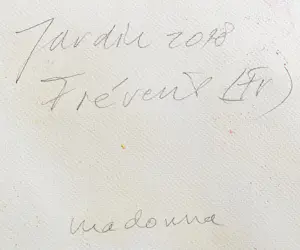 Jardin 2018
Frévent (Fr)
madonna